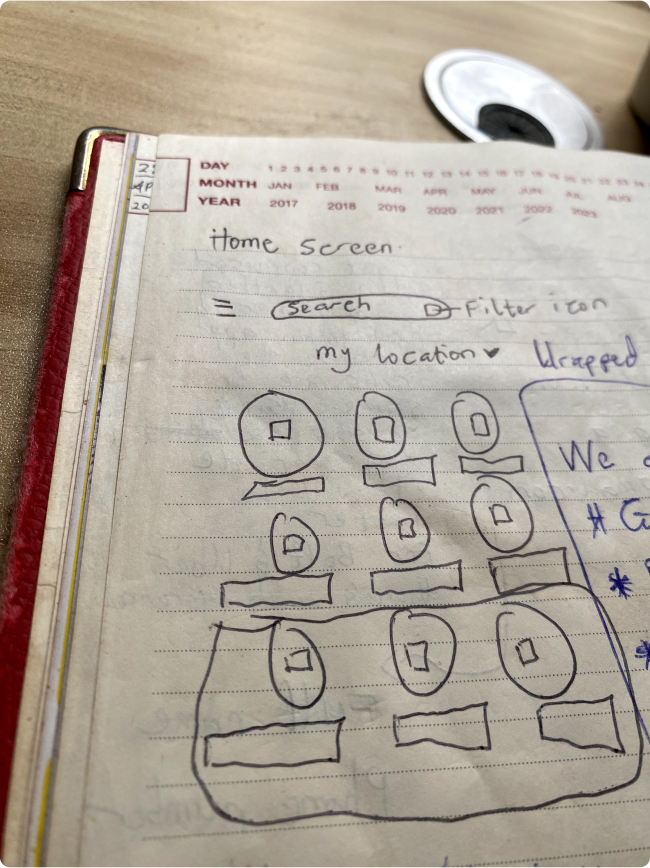 DAY 1 2 3 4 5 6 7 8 9 10 11 12 13 14 15 16 17 18 19 20 21 22 23 24
MONTH JAN FEB MAR APR MAY JUN JUL AUG
YEAR 2017 2018 2019 2020 2021 2022 2023
20
Home screen
search Filter icon
my location
Wrapped
We
# G
*
*